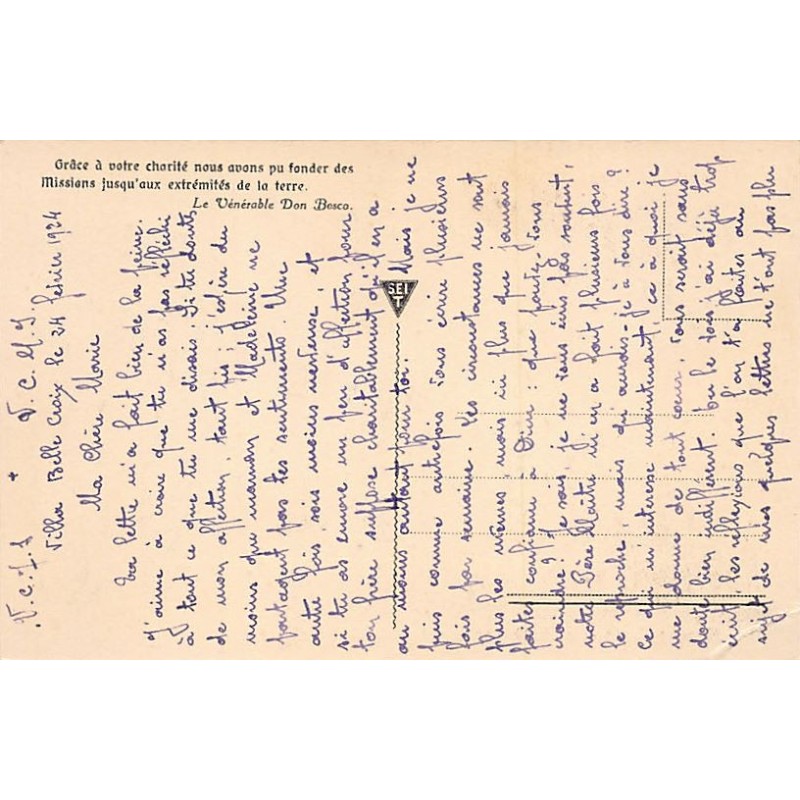 Grâce à votre charité nous avons pu fonder des
Missions jusqu'aux extrémités de la terre.
Le Vénérable Don Bosco.
SEI
T
V.C.J.S + V.C.M.J.
Villa Belle Croix le 24 février 1924
Ma Chère Marie
Ta lettre m'a fait bien de la peine.
J'aime à croire que tu n'as pas réfléchi
à tout ce que tu me disais. Si tu doutes
de mon affection, tant pis ; j'espère du
moins que maman et Madeleine ne
partagent pas tes sentiments. Une
autre fois sois moins nerveuse ; et
si tu as encore un peu d'affection pour
ton frère suppose charitablement qu'il en a
au moins autant pour toi. Mais je ne
puis comme autrefois vous écrire plusieurs
fois par semaine. Les circonstances ne sont
plus les mêmes, mais ni plus que jamais
faites confiance à Dieu : que pouvez-vous
craindre ? Je sais, je ne vous écris pas souvent,
notre Père Maître m'en a fait plusieurs fois
le reproche ; mais qu'aurais-je à vous dire ?
Ce qui m'intéresse maintenant, ce à quoi je
me donne de tout cœur, vous serait sans
doute bien indifférent. Tu le vois j'ai déjà trop
écrit, les réflexions que l'on t'a faites au
sujet de mes quelques lettres ne t'ont pas plu